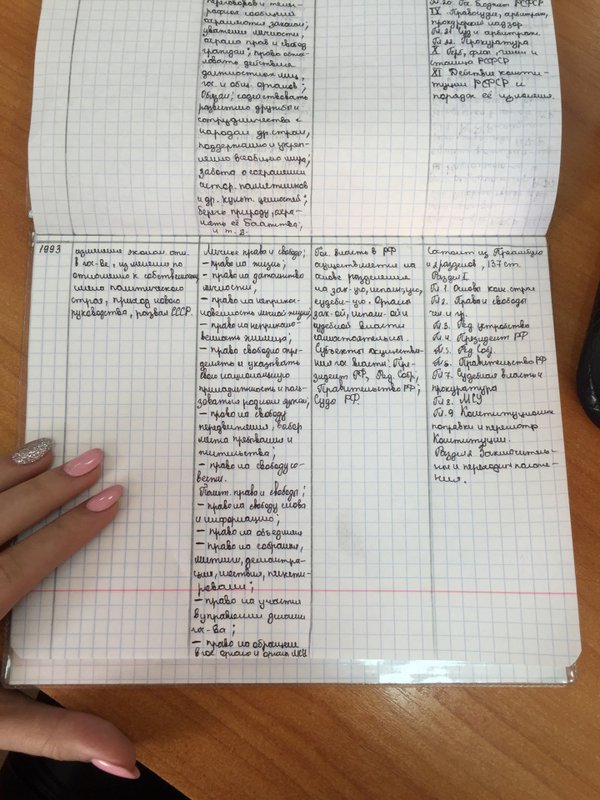 переговоров и теле-
графных сообщений
охраняются законом;
уважение личности,
охрана прав и свобод
граждан; право обжа-
ловать действия
должностных лиц,
гос. и общ. органов;
Обязан: содействовать
развитию дружбы и
сотрудничества с
народами др. стран,
поддержанию и укреп-
лению всеобщего мира;
забота о сохранении
истор. памятников
и др. культ. ценностей;
беречь природу, охра-
нять её богатства,
и т. д.
Гл. 20. Гос. Бюджет РСФСР
IX Правосудие, арбитраж,
прокурорский надзор
Гл. 21 Суд и арбитраж.
Гл. 22. Прокуратура
X Герб, флаг, гимн и
столица РСФСР
XI Действие консти-
туции РСФСР и
порядок её изменения.
1993
изменение эконом. отн.
в гос-ве, изменения по
отношению к собственности,
смена политического
строя, приход нового
руководства, развал СССР.
Личные права и свободы;
– право на жизнь;
– право на достоинство
личности;
– право на неприкос-
новенность личной жизни;
– право на неприкосно-
венность жилища;
– право свободно опре-
делять и указывать
свою национальную
принадлежность и поль-
зоваться родным языком;
– право на свободу
передвижения, выбор
места пребывания и
жительства;
– право на свободу со-
вести.
Полит. права и свободы;
– право на свободу слова
и информацию;
– право на объединение
– право на собрания,
митинги, демонстра-
ции, шествия, пикети-
рования;
– право на участие
в управлении делами
гос-ва;
– право на обращение
в гос. органы и органы МСУ
Гос. власть в РФ
осуществляется на
основе разделения
на зак-ую, исполн-ую,
судеб-ую. Органы
зак-ой, исполн-ой и
судебной власти
самостоятельны.
Субъекты осуществле-
ния гос. власти: Пре-
зидент РФ, Фед. Собр,
Правительство РФ,
Суды РФ.
Состоит из Преамбулы
и 2 разделов, 137 ст.
Раздел I
Гл 1. Основы конс. строя
Гл 2. Права и свободы
чел. и гр.
Гл 3. Фед. устройство
Гл 4. Президент РФ
Гл 5. Фед Собр.
Гл 6. Правительство РФ
Гл 7. Судебная власть и
прокуратура
Гл 8. МСУ
Гл 9. Конституционные
поправки и пересмотр
Конституции.
Раздел 2 Заключитель-
ные и переходные положе-
ния.